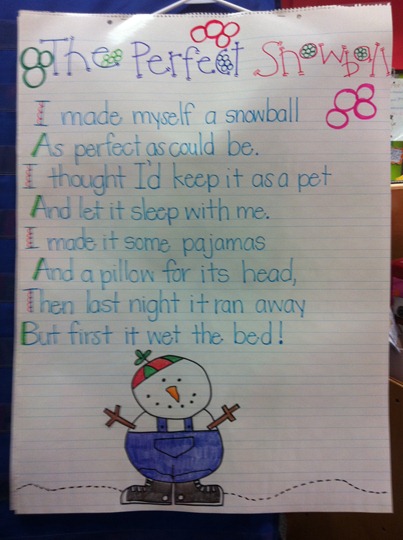 The Perfect Snowball
I made myself a snowball
As perfect as could be.
I thought I'd keep it as a pet
And let it sleep with me.
I made it some pajamas
And a pillow for its head,
Then last night it ran away
But first it wet the bed!